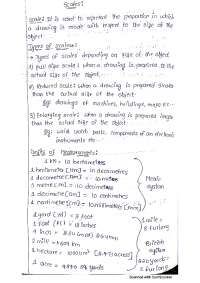 Scales:
Scales: It is used to represent the proportion in which
a drawing is made with respect to the size of the
object.
Types of scales:-
→ Types of scales depending on size of the object
1) Full size scale: when a drawing is prepared to the
actual size of the object.
2) Reduced scale: when a drawing is prepared smaller
than the actual size of the object.
Eg: drawings of machines, buildings, maps etc..
3) Enlarging scale: when a drawing is prepared larger
than the actual size of the object.
Eg: watch parts, components of an electronic
instruments etc..
Units of Measurements:
1 KM = 10 hectometres
1 hectometre [hm] = 10 decametres
1 decametre [Dm] = 10 metres
1 metre [m] = 10 decimetres
1 decimetre [Dm] = 10 centimetres
1 centimetre [cm] = 10 millimetres [mm]
Metric
system
1 yard (yd) = 3 foot
1 mile = 1609 km
1 hectare = 10000m²
1 acre = 4840 yards
1 mile =
8 furlong
British
system
220 yards =
1 furlong
Scanned with CamScanner